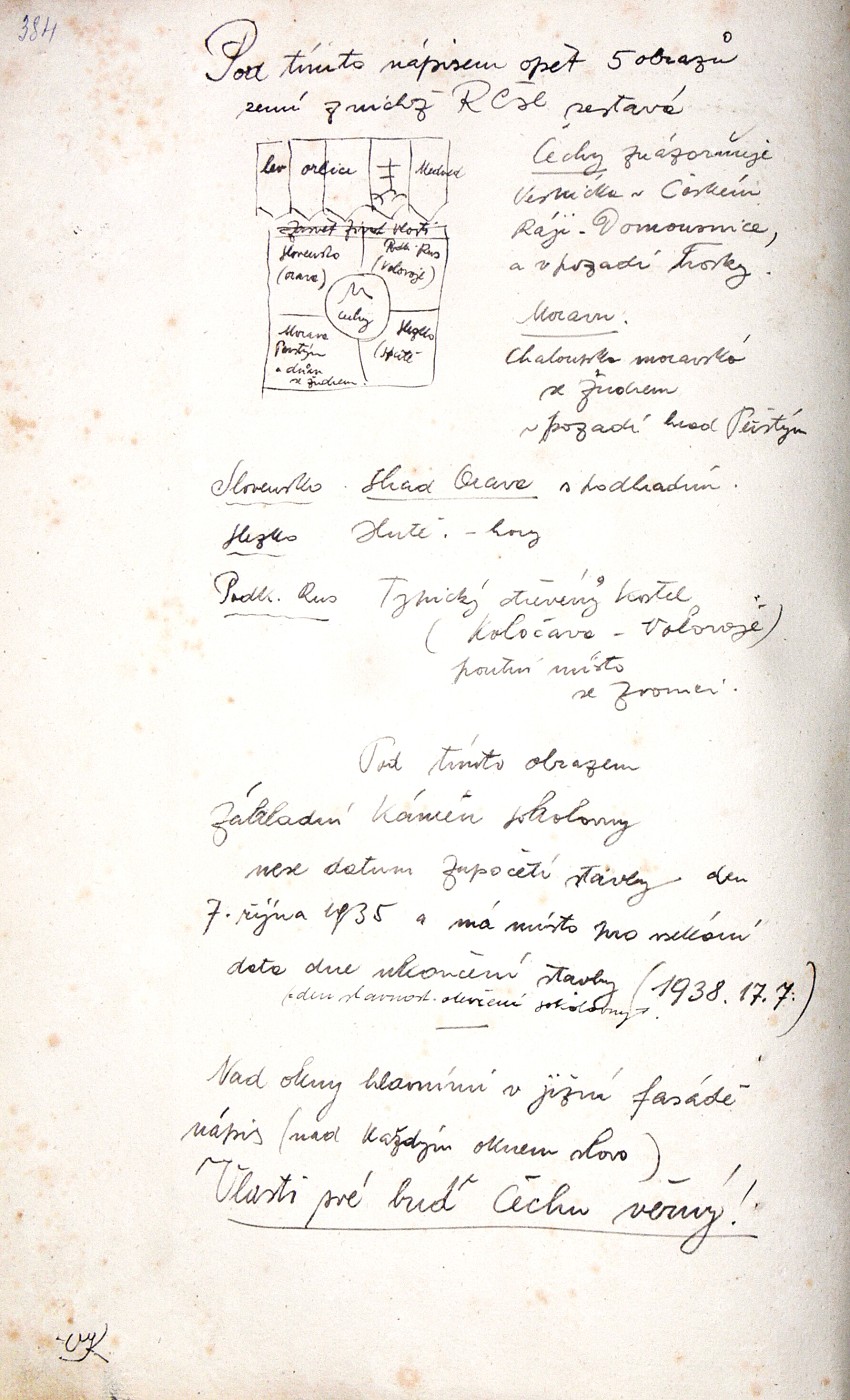 384
Pod tímto nápisem opět 5 obrazů
zemí z nichž RČSl sestává
lev orlice Medved
Slovensko
(orava)
Podk. Rus
(Volovoje)
Čechy
Morava
Perštýn
a dům
se žudrem.
Slezko
(Hutě
Čechy znázorňuje
Vesnička v Českém
Ráji - Domousnice,
a v pozadí Trosky.
Moravu:
Chaloupka moravská
se žudrem
v pozadí hrad Perštýn
Slovensko. Hrad Orava s podhradím.
Slezko Hutě. - hory
Podk. Rus Typický dřevěný kostel
(Koločava - Volovoje)
poutní místo
se zvonicí.
Pod tímto obrazem
Základní kámen sokolovny
nese datum započetí stavby den
7. října 1935 a má místo pro vsekání
data dne ukončení stavby (1938. 17. 7.)
(den slavnost. otevření sokolovny).
Nad okny hlavními v jižní fasádě
nápis (nad každým oknem slovo)
Vlasti své buď Čechu věrný!
VK